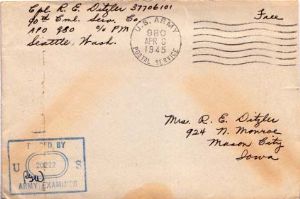 Cpl R. E. Ditzler 37706101
90th Cml. Serv. Co.
APO 980 % P.M.
Seattle, Wash.
Free
U.S. ARMY
980
APR
1945
POSTAL SERVICE
Mrs. R. E. Ditzler
924 N. Monroe
Mason City
Iowa
BY
U S
ARMY EXAMINER